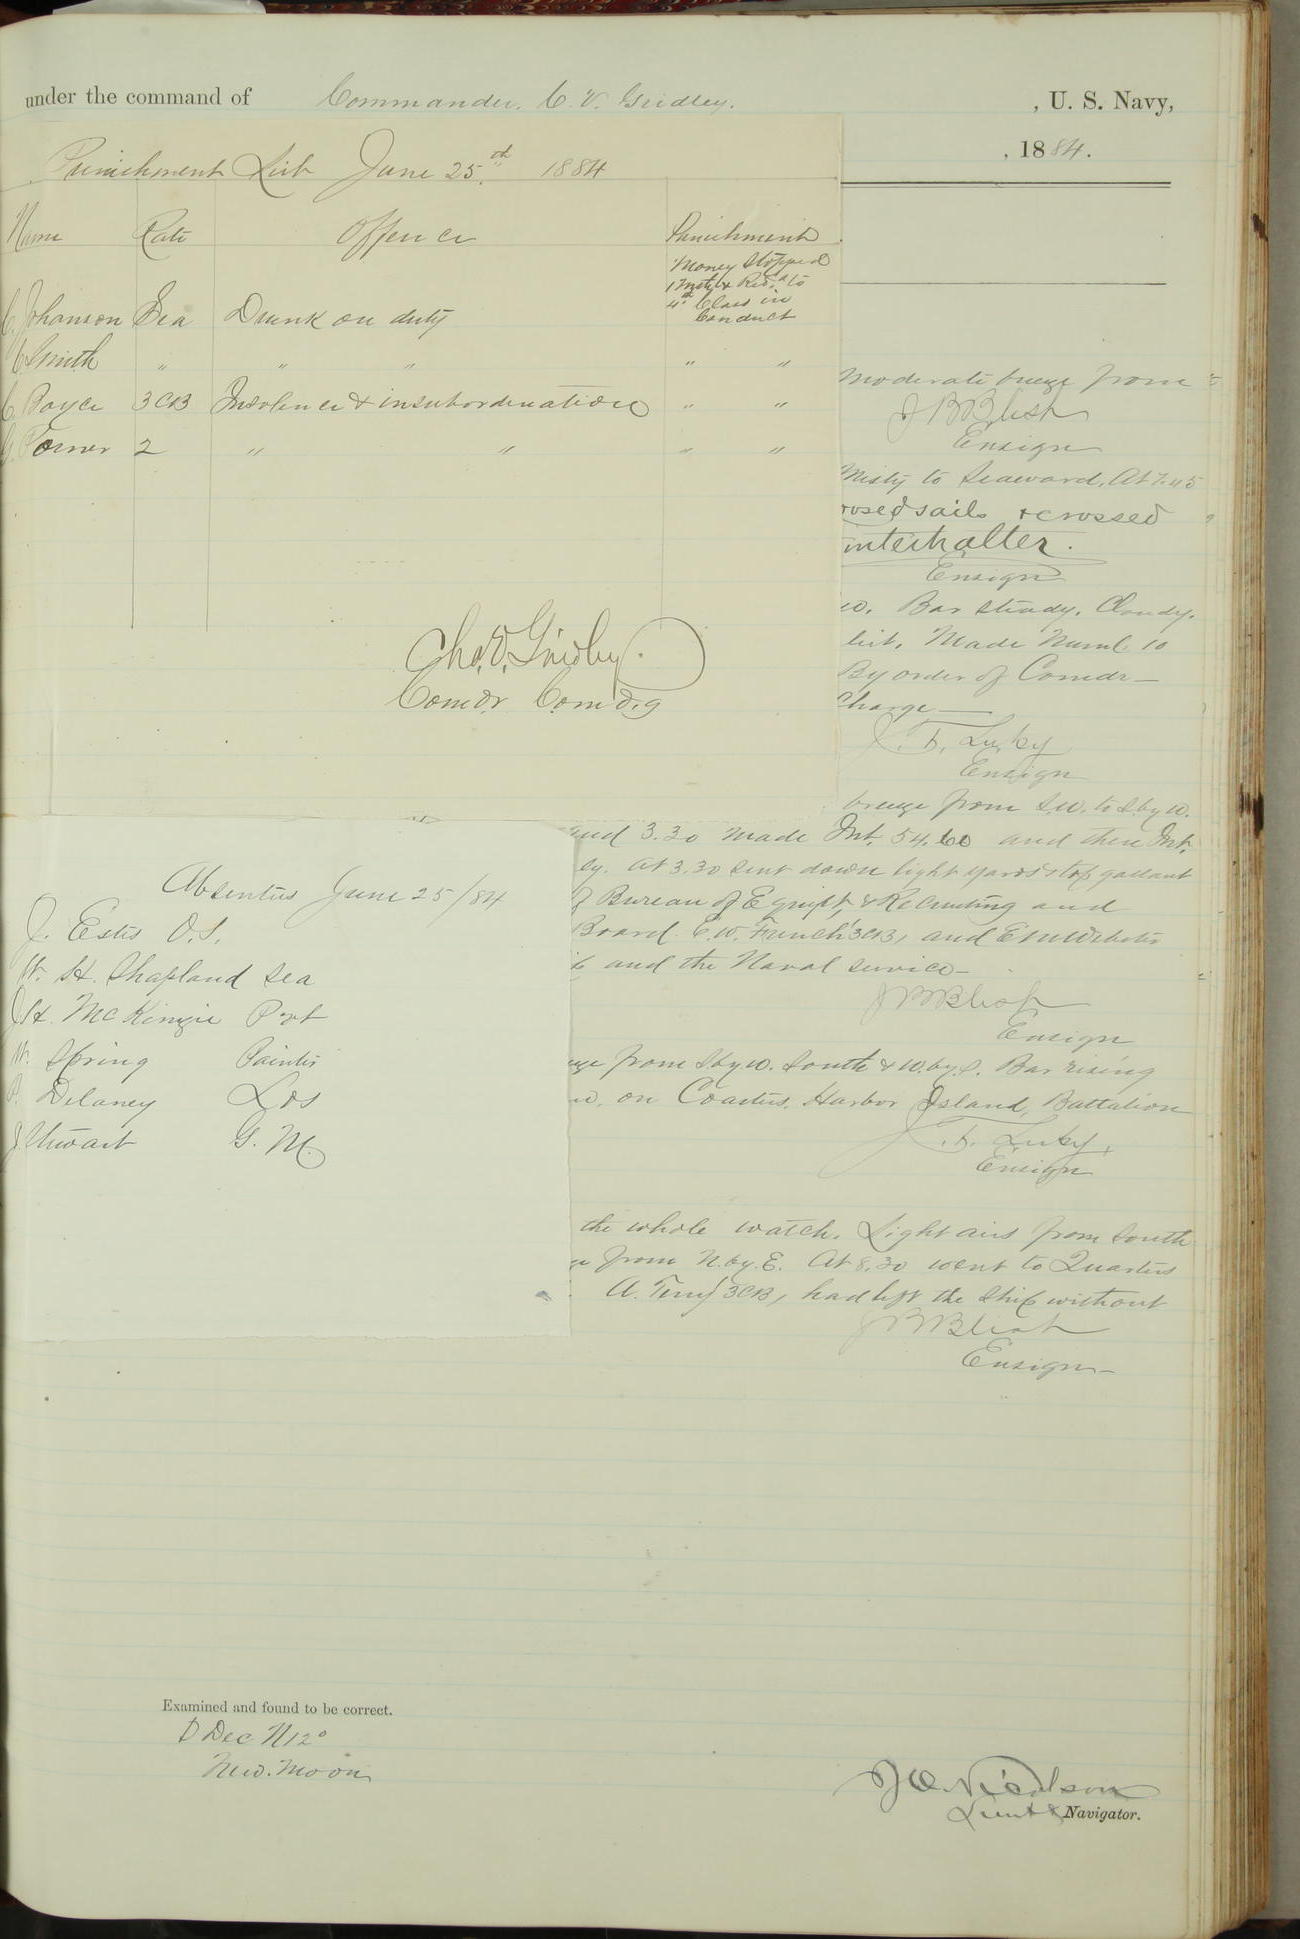 under the command of Commander. C. V. Gridley. , U. S. Navy,
, 1884.
Punishment List June 25th 1884
Name Rate Offence Punishment
Money Stopped
1 Mnth & Red'd to
4th Class in
Conduct
C. Johanson Sea Drunk on duty
C. Smith " " " " "
C. Boyce 3CB Insolence & insubordination " "
G. Torner 2 " " " "
Chas. V. Gridley.
Comdr Comd'g
Moderate breeze from
J B Blish
Ensign
Misty to Seaward. At 7.45
loosed sails & crossed
interhalter.
Ensign
w. Bar steady. Cloudy.
list. Made Numb. 10
By order of Comdr
Charge
J. F. Luby
Ensign
breeze from S.W. to S. by W.
and 3.30 made Int. 54.60 and then Int.
ey. At 3.30 sent down light yards & top gallant
of Bureau of Equipt. & Recruiting and
Board. E. W. French 3CB, and E M Webster
and the Naval service
J B Blish
Ensign
from S by W. South & W. by S. Bar rising
w. on Coasters Harbor Island, Battalion
J. F. Luby,
Ensign
the whole watch. Light airs from South
from N. by E. At 8.30 went to Quarters
A. Terry 3CB, had left the ship without
J B Blish
Ensign
Absentees June 25/84
J. Estes O.S.
W. H. Shapland Sea
J H. McKinzie Port
W. Spring Painter
P. Delaney Lds
J Stewart G. M.
Examined and found to be correct.
D Dec N 12°
New. Moon
J O Nicolson
Lieut & Navigator.